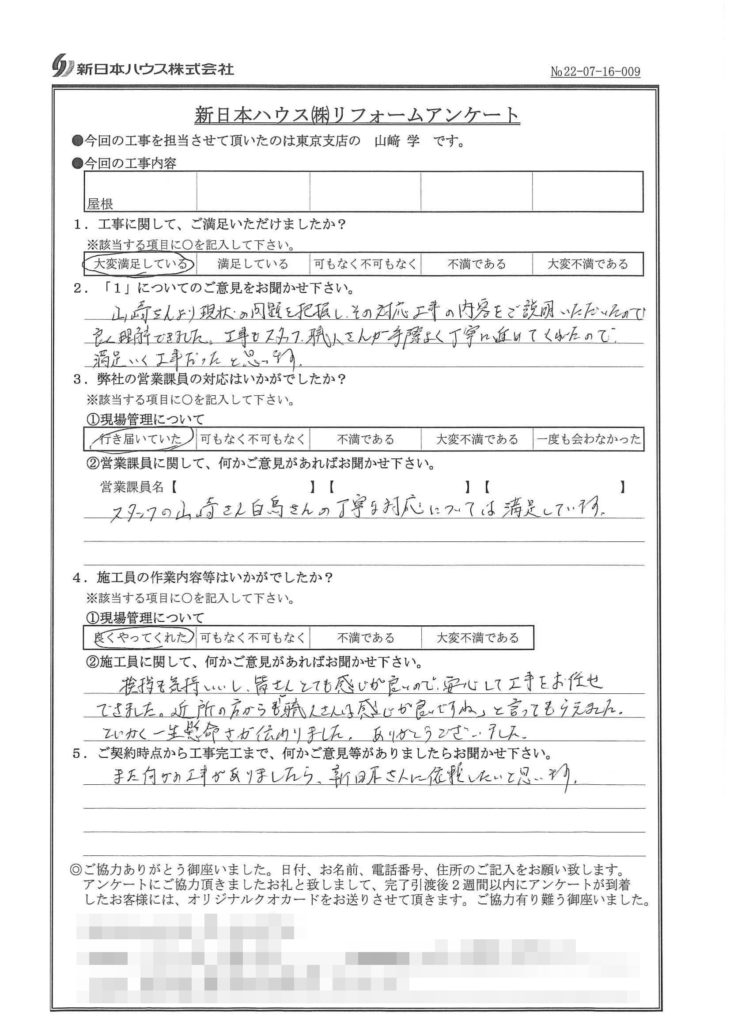 新日本ハウス株式会社
№22-07-16-009
新日本ハウス㈱リフォームアンケート
●今回の工事を担当させて頂いたのは東京支店の 山﨑 学 です。
●今回の工事内容
屋根
1．工事に関して、ご満足いただけましたか？
※該当する項目に○を記入して下さい。
大変満足している 満足している 可もなく不可もなく 不満である 大変不満である
2．「1」についてのご意見をお聞かせ下さい。
山崎さんより現状の問題を把握し、その対応工事の内容をご説明いただいたので
良く理解できました。工事もスタッフ、職人さんが手際よく丁寧に進めてくれたので、
満足いく工事だったと思います。
3．弊社の営業課員の対応はいかがでしたか？
※該当する項目に○を記入して下さい。
①現場管理について
行き届いていた 可もなく不可もなく 不満である 大変不満である 一度も会わなかった
②営業課員に関して、何かご意見があればお聞かせ下さい。
営業課員名【 】【 】【 】
スタッフの山崎さん白鳥さんの丁寧な対応については満足しています。
4．施工員の作業内容等はいかがでしたか？
※該当する項目に○を記入して下さい。
①現場管理について
良くやってくれた 可もなく不可もなく 不満である 大変不満である
②施工員に関して、何かご意見があればお聞かせ下さい。
挨拶も気持いいし、皆さんとても感じが良いので、安心して工事をお任せ
できました。近所の方からも「職人さんは感じが良いですね」と言ってもらえました。
とにかく一生懸命さが伝わりました。ありがとうございました。
5．ご契約時点から工事完工まで、何かご意見等がありましたらお聞かせ下さい。
また何かの工事がありましたら、新日本さんに依頼したいと思います。
◎ご協力ありがとう御座いました。日付、お名前、電話番号、住所のご記入をお願い致します。
アンケートにご協力頂きましたお礼と致しまして、完了引渡後２週間以内にアンケートが到着
したお客様には、オリジナルクオカードをお送りさせて頂きます。ご協力有り難う御座いました。